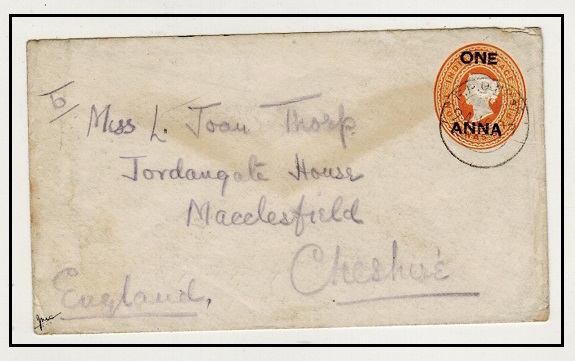 ONE
ANNA
To
Miss L. Joan Thorp
Jordangate House
Macclesfield
Cheshire
England,